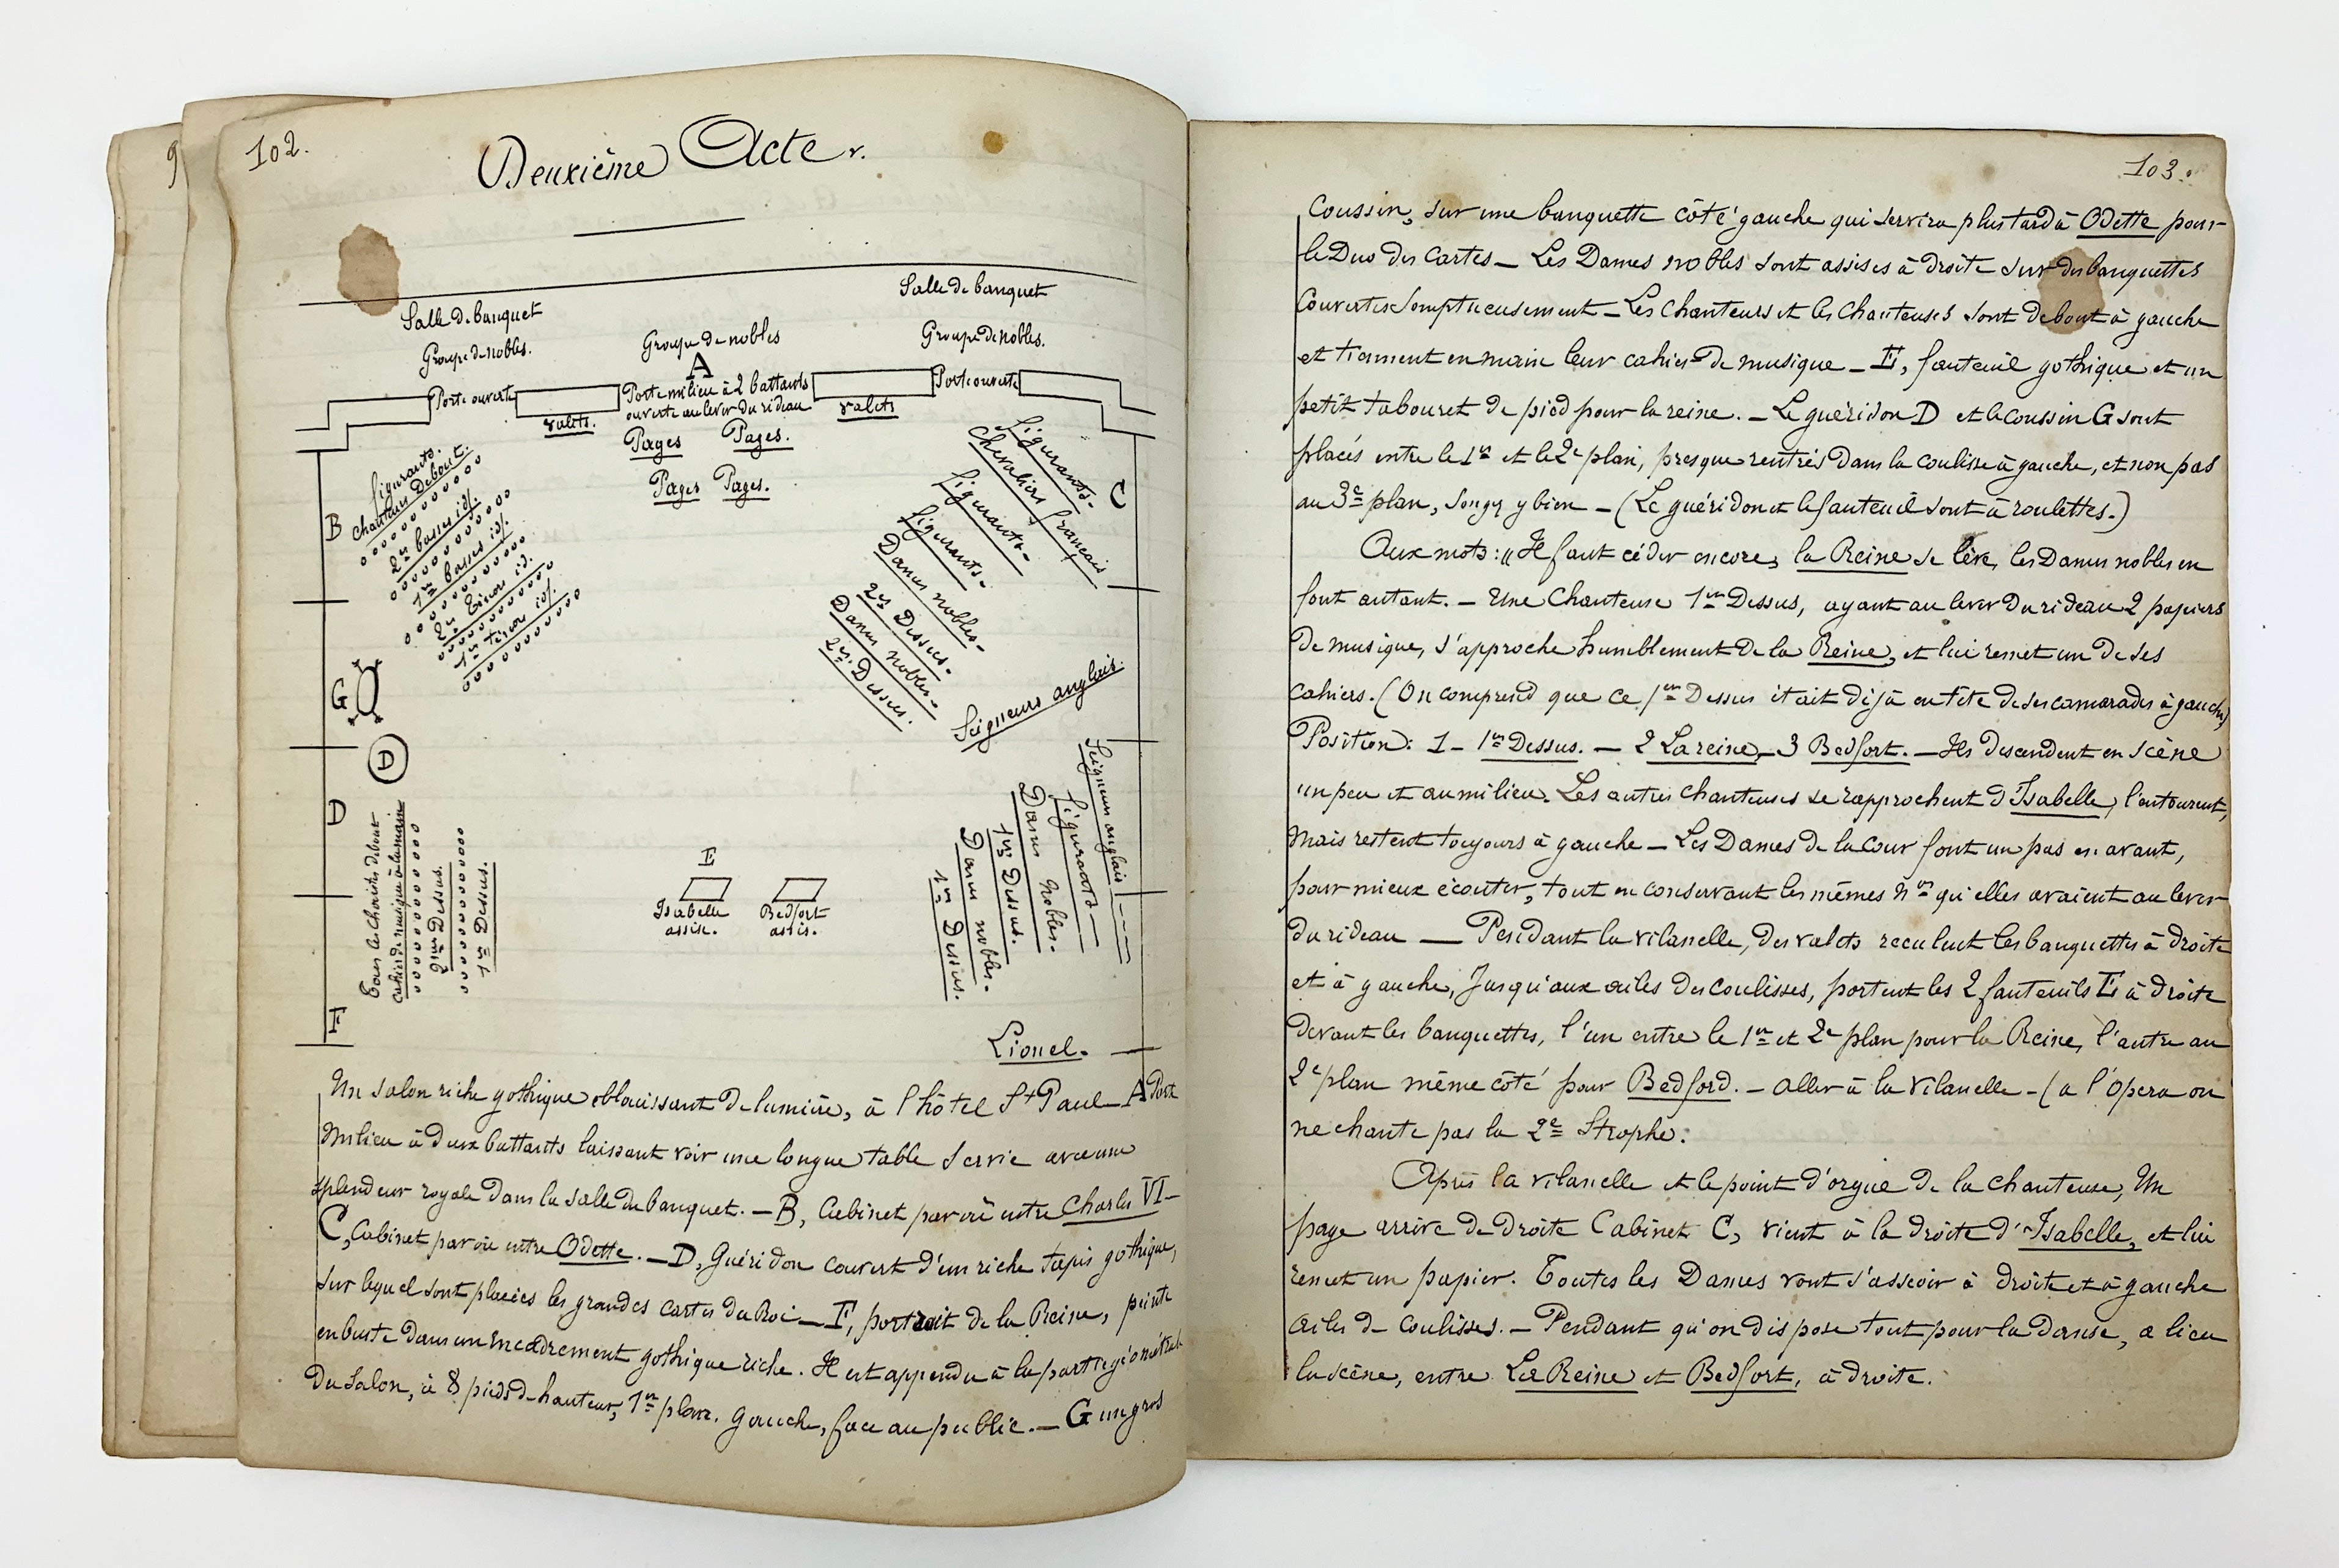 9
102.
Deuxième Acte.
Salle de banquet
Salle de banquet
Groupe de nobles.
Groupe de nobles
Groupe de nobles.
A
Porte ouverte
Porte milieu à 2 battants
ouverte au lever du rideau
Porte ouverte
valets.
valets
Pages Pages.
Pages Pages.
B
figurants.
Chanteurs Debout.
2es basses id.
1res basses id.
2es Ténors id.
1ers ténors id.
C
figurants.
Chevaliers français
figurants.
figurants.
Dames nobles.
2es Dessus.
Dames nobles.
2es Dessus.
Seigneurs anglais
G
D
D
Tous les choristes debout
cahier de musique à la main
2mes Dessus.
1ers Dessus.
E
Isabelle
assise.
Bedfort
assis.
Seigneurs anglais
figurants
Dames nobles.
1ers Dessus.
Dames nobles.
1ers Dessus.
F
Lionel.
Un salon riche gothique eblouissant de lumière, à l'hôtel St Paul — A Porte
milieu à deux battants laissant voir une longue table servie avec une
splendeur royale dans la salle du banquet. — B, Cabinet par où entre Charles VI —
C, Cabinet par où entre Odette. — D, Guéridon couvert d'un riche tapis gothique,
sur lequel sont placées les grandes cartes du Roi — F, portrait de la Reine, peinte
en buste dans un encadrement gothique riche. Il est appendu à la partie géométrale
du Salon, à 8 pieds de hauteur, 1er plan. Gauche, face au public. — G un gros
103.
Coussin, sur une banquette côté gauche qui servira plus tard à Odette pour
le Duo des Cartes — Les Dames nobles sont assises à droite sur des banquettes
couvertes somptueusement — Les Chanteurs et les Chanteuses sont debout à gauche
et tiennent en main leur cahier de musique — E, fauteuil gothique et un
petit tabouret de pied pour la reine. — Le guéridon D et le coussin G sont
placés entre le 1er et le 2e plan, presque rentrés dans la coulisse à gauche, et non pas
au 3e plan, songez y bien — (Le guéridon et le fauteuil sont à roulettes.)
Aux mots : "Il faut céder encore, la Reine se lève, les Dames nobles en
font autant. — Une Chanteuse 1er Dessus, ayant au lever du rideau 2 papiers
de musique, s'approche humblement de la Reine, et lui remet un de ses
cahiers. (On comprend que ce 1er Dessus était déjà en tête de ses camarades à gauche)
Position: 1 — 1er Dessus. — 2 La reine — 3 Bedfort. — Ils descendent en scène
un peu et au milieu. Les autres chanteuses se rapprochent d'Isabelle, l'entourent,
mais restent toujours à gauche — Les Dames de la Cour font un pas en avant,
pour mieux écouter, tout en conservant les mêmes Nos qu'elles avaient au lever
du rideau — Pendant la vilanelle, des valets reculent les banquettes à droite
et à gauche, jusqu'aux ailes des coulisses, portent les 2 fauteuils E à droite
devant les banquettes, l'un entre le 1er et 2e plan pour la Reine, l'autre au
2e plan même côté pour Bedford. — aller à la vilanelle — (a l'Opera on
ne chante pas la 2e Strophe.
Après la vilanelle et le point d'orgue de la chanteuse, Un
page arrive de droite Cabinet C, vient à la droite d'Isabelle, et lui
remet un papier. Toutes les Dames vont s'asseoir à droite et à gauche
ailes de coulisses. — Pendant qu'on dispose tout pour la danse, a lieu
la scène, entre La Reine et Bedfort, à droite.